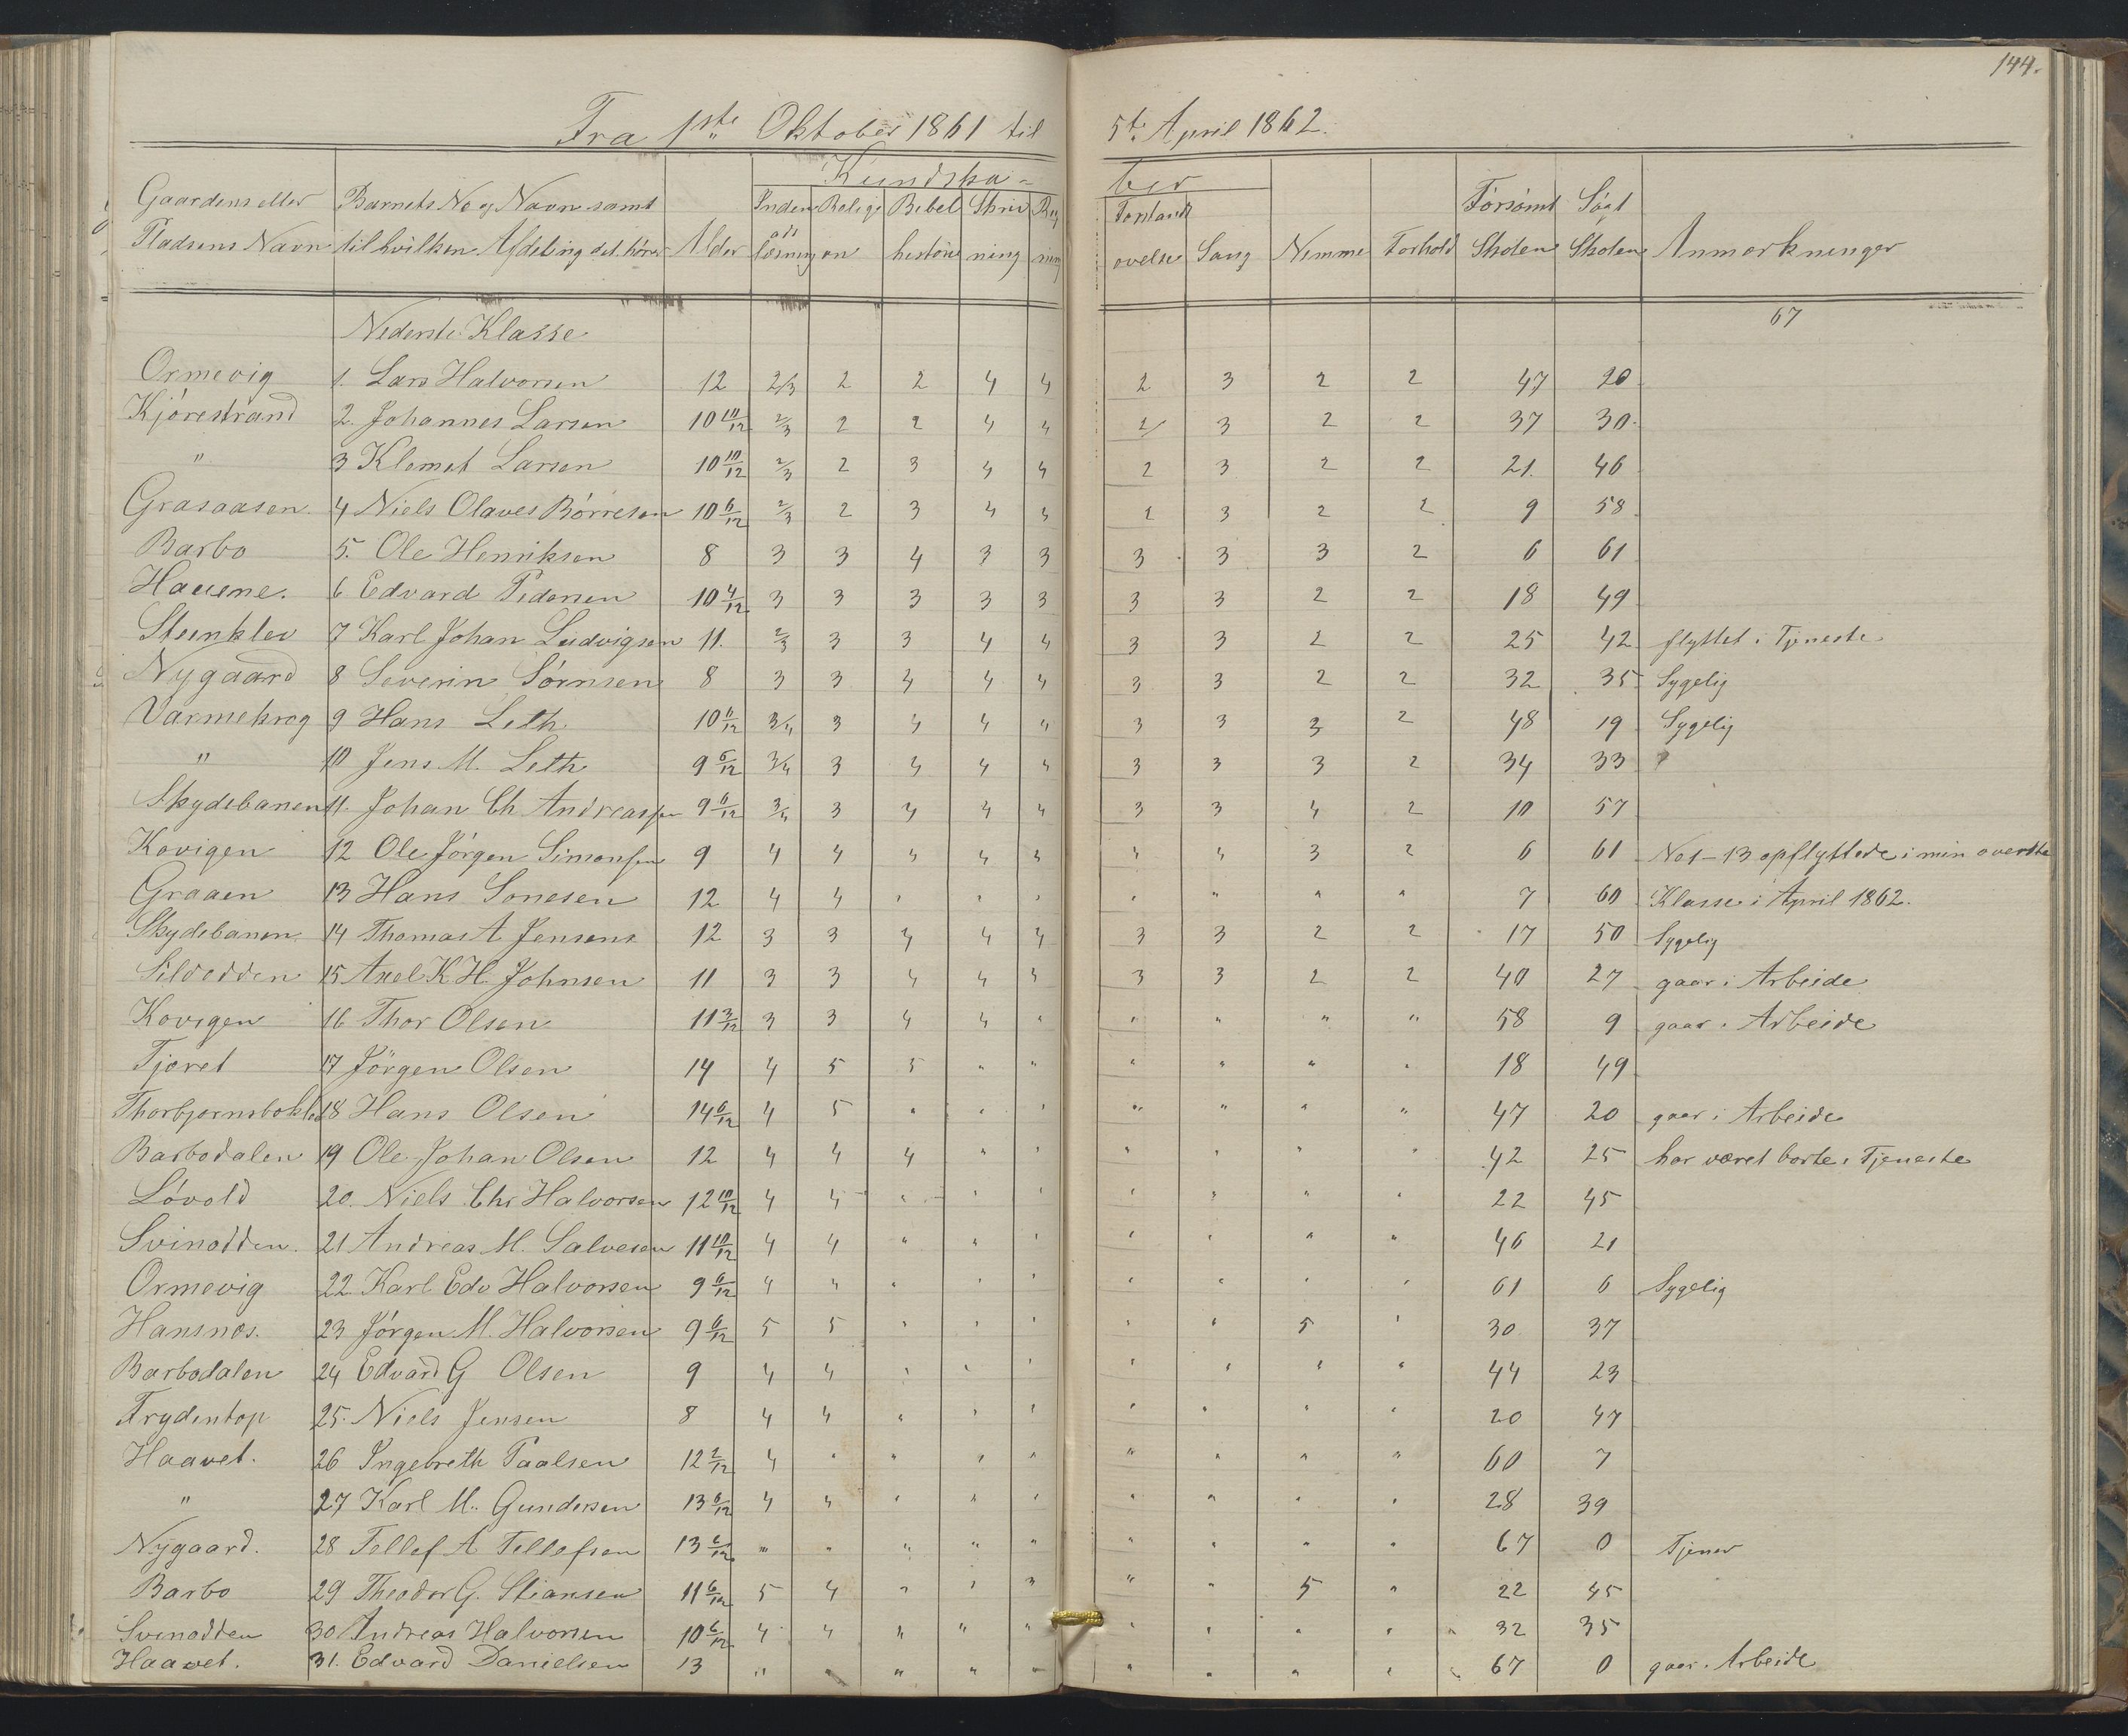 144.
Fra 1ste Oktober 1861 til 5te April 1862.
Kundska- ber
Gaardens eller Barnets No og Navn samt Inden Religi Bibel Skriv Reg Forstands Forsømt Søgt
Pladsens Navn til hvilken Afdeling det hører Alder læsning on historie ning ning øvelse Sang Nemme Forhold Skolen Skolen Anmærkninger
Nederste Klasse 67
Ormevig 1. Lars Halvorsen 12 2/3 2 2 4 4 2 3 2 2 47 20
Kjørestrand 2. Johannes Larsen 10 10/12 2/3 2 2 4 4 2 3 2 2 37 30
" 3 Klemet Larsen 10 10/12 2/3 2 3 4 4 2 3 2 2 21 46
Grasaasen 4 Niels Olaves Børresen 10 6/12 2/3 2 3 4 3 2 3 2 2 9 58
Barbo 5. Ole Henriksen 8 3 3 4 3 3 3 3 3 2 6 61
Hauene. 6 Edvard Pedersen 10 4/12 3 3 3 3 3 3 3 2 2 18 49
Steenklev 7 Karl Johan Ludvigsen 11. 2/3 3 3 4 4 3 3 2 2 25 42 flyttet i Tjeneste
Nygaard 8 Severin Sørnsen 8 3 3 4 4 4 3 3 2 2 32 35 Sygelig
Varmekrog 9 Hans Leth 10 6/12 3/4 3 4 4 " 3 3 3 2 48 19 Sygelig
" 10 Jens M. Leth 9 6/12 3/4 3 4 4 4 3 3 3 2 34 33
Skydebanen 11. Johan Ch Andreassen 9 6/12 3/4 3 4 4 4 3 3 4 2 10 57
Kovigen 12 Ole Jörgen Simonsen 9 4 4 4 4 3 4 4 3 2 6 61 No 1-13 opflyttede i min øverste
Graaen 13 Hans Sonesen 12 4 4 " " " " " " " 7 60 Klasse i April 1862.
Skydebanen 14 Thomas A Jensen 12 3 3 4 4 4 3 3 2 2 17 50 Sygelig
Sildodden 15 Axel K. H. Johnsen 11 3 3 4 4 3 3 3 2 2 40 27 gaar i Arbeide
Kovigen 16 Thor Olsen 11 3/12 3 3 4 4 " " " " " 58 9 gaar i Arbeide
Tjoret 17 Jörgen Olsen 14 4 5 5 " " " " " " 18 49
18 Hans Olsen 14 6/12 4 5 " " " " " " " 47 20 gaar i Arbeide
Barbodalen 19 Ole Johan Olsen 12 4 4 4 " " " " " " 42 25 har været borte i Tjeneste
Løvold 20. Niels Chr Halvorsen 12 10/12 4 4 " " " " " " " 22 45
Svinodden. 21 Andreas M. Salvesen 11 10/12 4 4 " " " " " " " 46 21
Ormevig 22 Karl Edv Halvorsen 9 6/12 4 4 " " " " " " " 61 6 Sygelig
Hansnæs. 23 Jörgen M. Halvorsen 9 6/12 5 5 " " " " " 5 " 30 37
Barbodalen 24 Edvard G Olsen 9 4 4 " " " " " " " 44 23
Frydentop 25. Niels Jensen 8 4 4 " " " " " " " 20 47
Haavet. 26 Ingebreth Paalsen 12 2/12 4 " " " " " " " " 60 7
" 27 Karl M. Gundersen 13 6/12 4 4 " " " " " " " 28 39
Nygaard. 28 Tellef A Tellefsen 13 6/12 " " " " " " " " " 67 0 Tjener
Barbo 29 Theodor G. Stiansen 11 6/12 5 4 " " 3 " " 5 " 22 45
Svinodden 30 Andreas Halvorsen 10 6/12 4 4 " " " " " " " 32 35
Haavet. 31. Edvard Danielsen 13 " " " " " " " " " 67 0 gaar i Arbeide